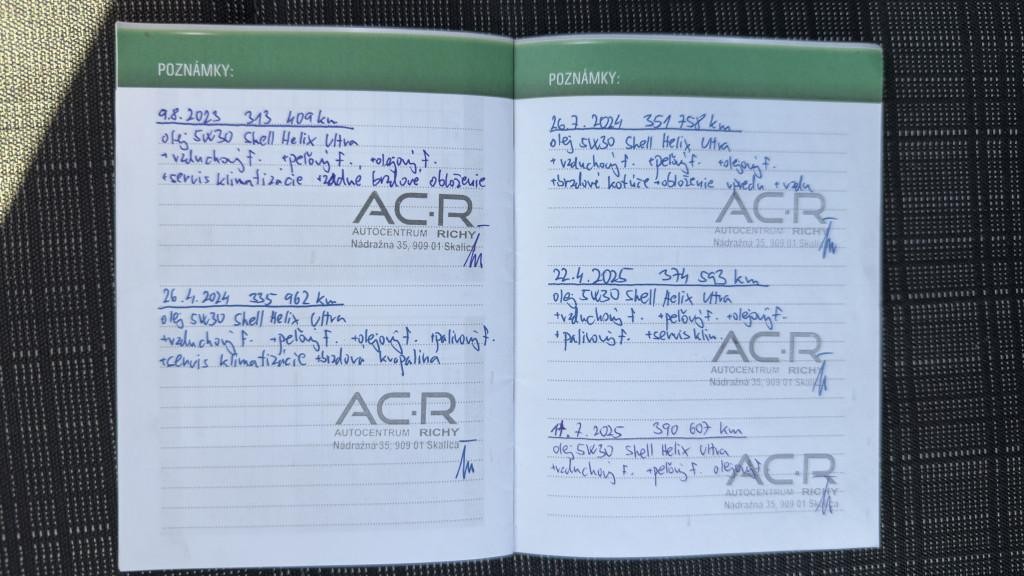 POZNÁMKY:
9.8.2023 313 409 km
olej 5W30 Shell Helix Ultra
+vzduchový f. +peľový f. +olejový f.
+servis klimatizácie +zadné brzdové obloženie
AC-R
AUTOCENTRUM RICHY
Nádražná 35, 909 01 Skalica
26.4.2024 335 962 km
olej 5W30 Shell Helix Ultra
+vzduchový f. +peľový f. +olejový f. +palivový f.
+servis klimatizácie +brzdová kvapalina
AC-R
AUTOCENTRUM RICHY
Nádražná 35, 909 01 Skalica
POZNÁMKY:
26.7.2024 351 758 km
olej 5W30 Shell Helix Ultra
+vzduchový f. +peľový f. +olejový f.
+brzdové kotúče +obloženie vpredu +vzadu
AC-R
AUTOCENTRUM RICHY
Nádražná 35, 909 01 Skalica
22.4.2025 374 593 km
olej 5W30 Shell Helix Ultra
+vzduchový f. +peľový f. +olejový f.
+palivový f. +servis klim.
AC-R
AUTOCENTRUM RICHY
Nádražná 35, 909 01 Skalica
7.2025 390 607 km
olej 5W30 Shell Helix Ultra
+vzduchový f. +peľový f. olejový f.
AC-R
AUTOCENTRUM RICHY
Nádražná 35, 909 01 Skalica